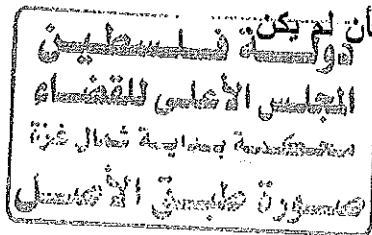 أن لم يكن.
دولة فلسطين
المجلس الأعلى للقضاء
محكمة بداية شمال غزة
صورة طبق الأصل